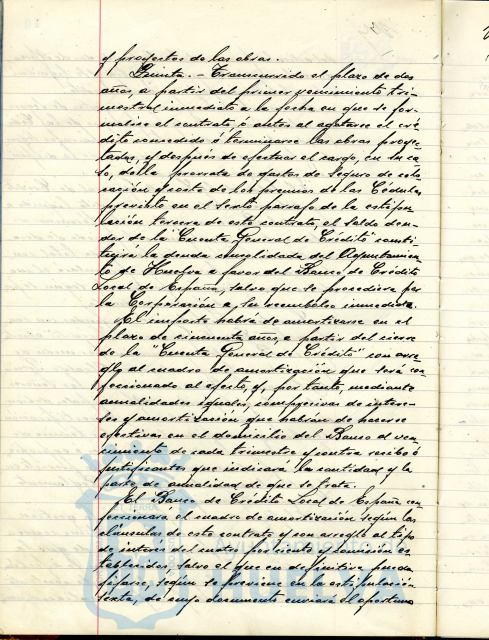 y proyectos de las obras.
Quinta.- Transcurrido el plazo de dos
años, a partir del primer vencimiento tri-
mestral inmediato a la fecha en que se for-
malice el contrato, ó antes al agotarse el cré-
dito concedido ó terminarse las obras proyec-
tadas, y después de efectuar el cargo, en su ca-
so, de la prorrata de gastos de seguro de coti-
zación y costo de los premios de las Cédulas
previsto en el sexto parrafo de la estipu-
lación tercera de este contrato, el saldo deu-
dor de la "Cuenta General de Crédito" consti-
tuirá la deuda consolidada del Ayuntamien-
to de Huelva a favor del Banco de Crédito
Local de España, salvo que se procediera por
la Corporación a su reembolso inmediato.
El importe habrá de amortizarse en el
plazo de cincuenta años, a partir del cierre
de la "Cuenta General de Crédito" con arre-
glo al cuadro de amortización que será con-
feccionado al efecto, y, por tanto, mediante
anualidades iguales, comprensivas de intere-
ses y amortización que habrán de hacerse
efectivas en el domicilio del Banco al ven-
cimiento de cada trimestre y contra recibo ó
justificantes que indicará la cantidad y la
parte de anualidad de que se trata.
El Banco de Crédito Local de España con-
feccionará el cuadro de amortización según las
cláusulas de este contrato y con arreglo al tipo
de interes del cuatro por ciento y comisión es-
tablecidos, salvo el que en definitiva pueda
fijarse, según se previene en la estipulación
sexta, de cuyo documento enviará el oportuno
HUELVA